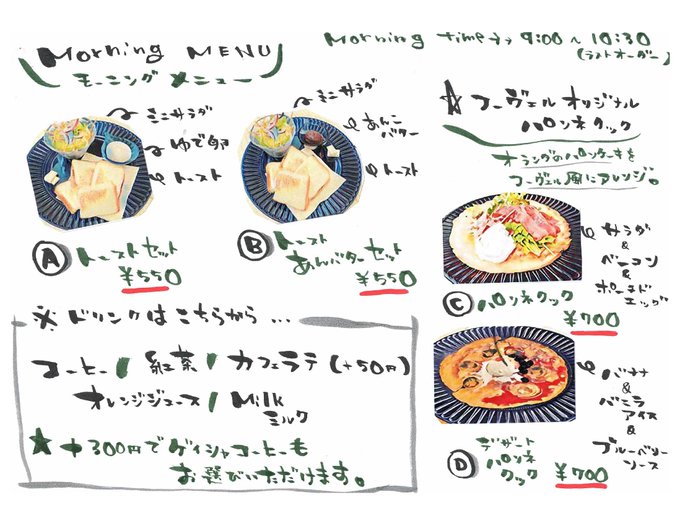 Morning MENU
モーニングメニュー
Morning time→ 9:00〜10:30
(ラストオーダー)
ミニサラダ
ゆで卵
トースト
Ⓐ トーストセット
¥550
ミニサラダ
あんこ
バター
トースト
Ⓑ トースト
あんバターセット
¥550
☆ コーヴェルオリジナル
パンネクック
オランダのパンケーキを
コーヴェル風にアレンジ。
サラダ
&
ベーコン
&
ポーチド
エッグ
Ⓒ パンネクック
¥700
バナナ
&
バニラ
アイス
&
ブルーベリー
ソース
Ⓓ デザート
パンネ
クック
¥700
※ ドリンクはこちらから…
コーヒー / 紅茶 / カフェラテ (+50円)
オレンジジュース / Milk
ミルク
★ +300円でゲイシャコーヒーも
お選びいただけます。